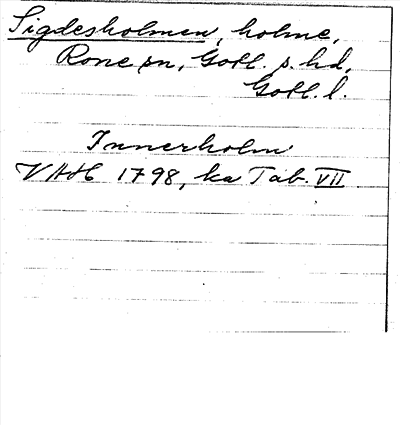 Sigdesholmen, holme,
Rone sn, Gotl. s. hd,
Gotl. l.
Innerholm
VAH 1798, ka Tab. VII